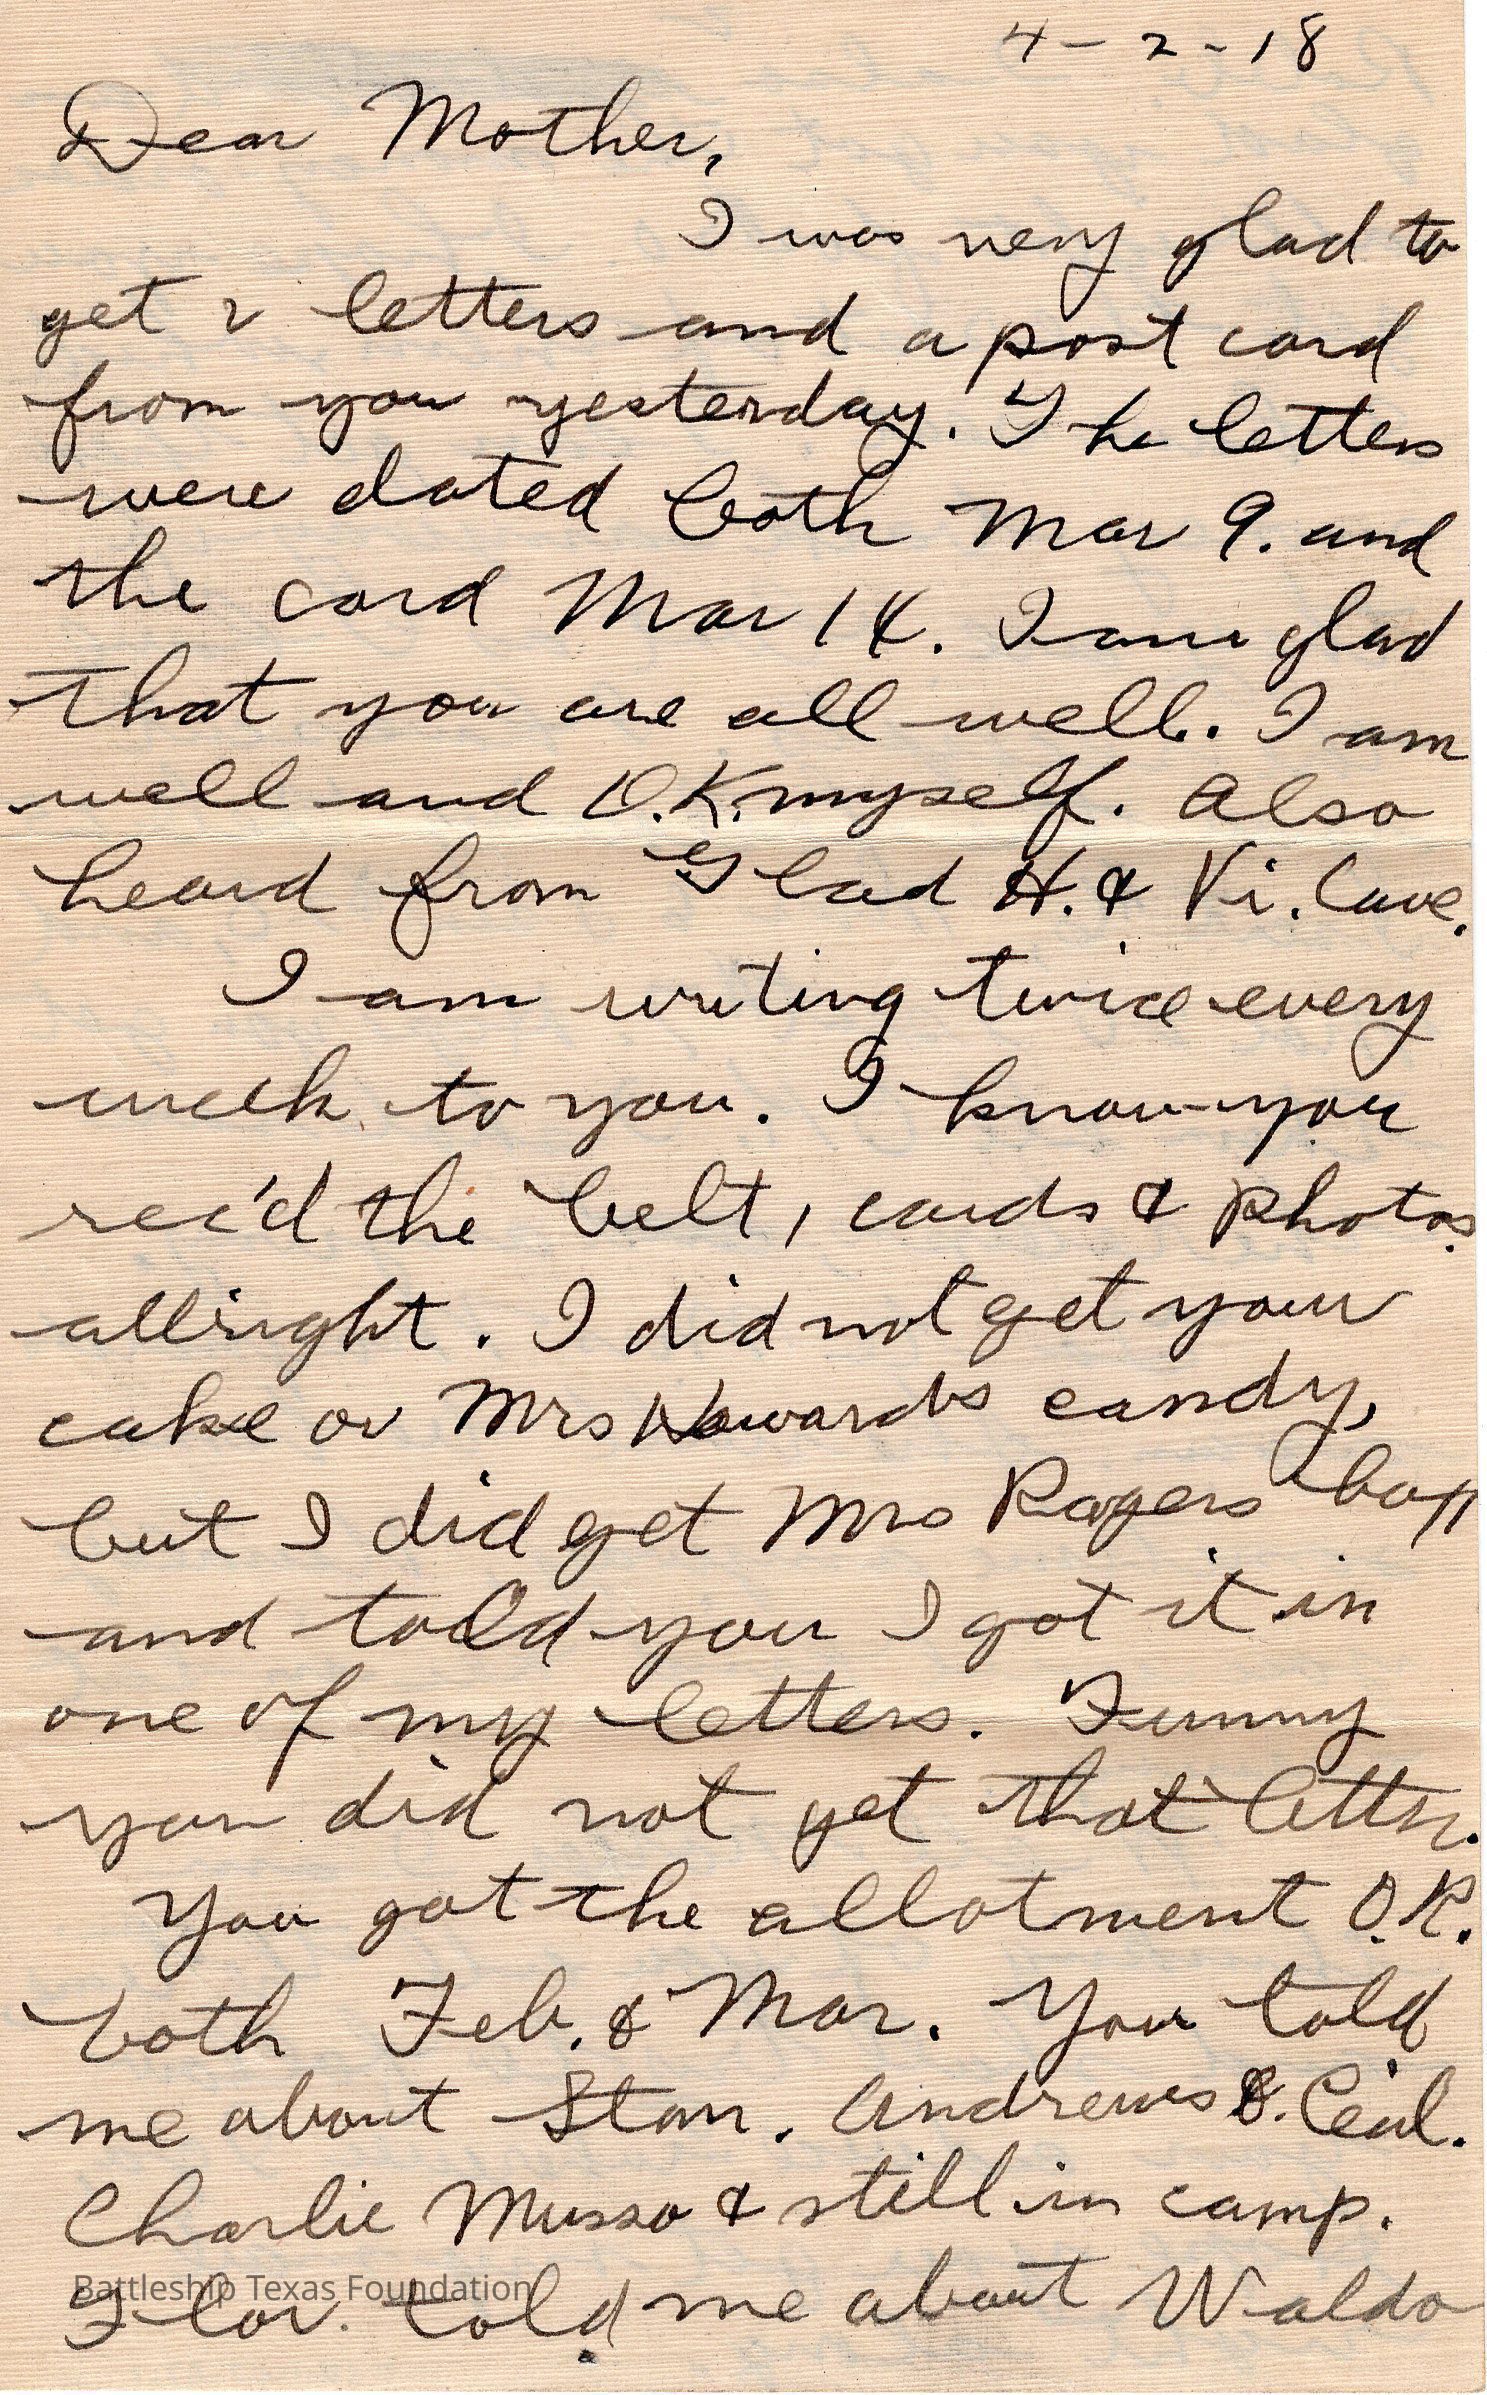 4-2-18
Dear Mother,
I was very glad to
get 2 letters and a post card
from you yesterday. The letters
were dated both Mar 9. and
the card Mar 14. I am glad
that you are all well. I am
well and O.K. myself. Also
heard from Glad H. & Vi. Cave.
I am writing twice every
week to you. I know you
rec'd the belt, cards & photos
allright. I did not get your
cake or Mrs Howards candy,
but I did get Mrs Rogers box
and told you I got it in
one of my letters. Funny
you did not get that letter.
You got the allotment O.K.
both Feb. & Mar. You told
me about Stan. Andrews &. Ceil.
Charlie Musso & still in camp.
Flor. told me about Waldo
Battleship Texas Foundation